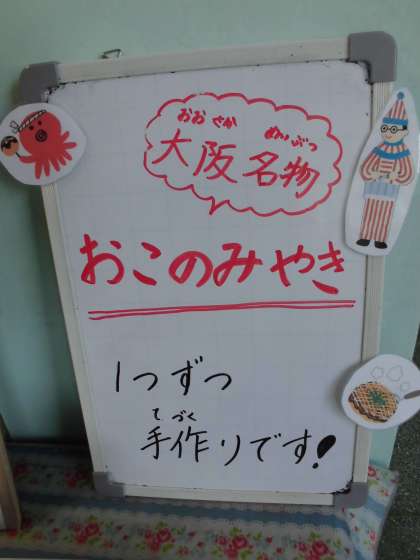 おおさか めいぶつ
大阪名物
おこのみやき
1つずつ
てづく
手作りです!